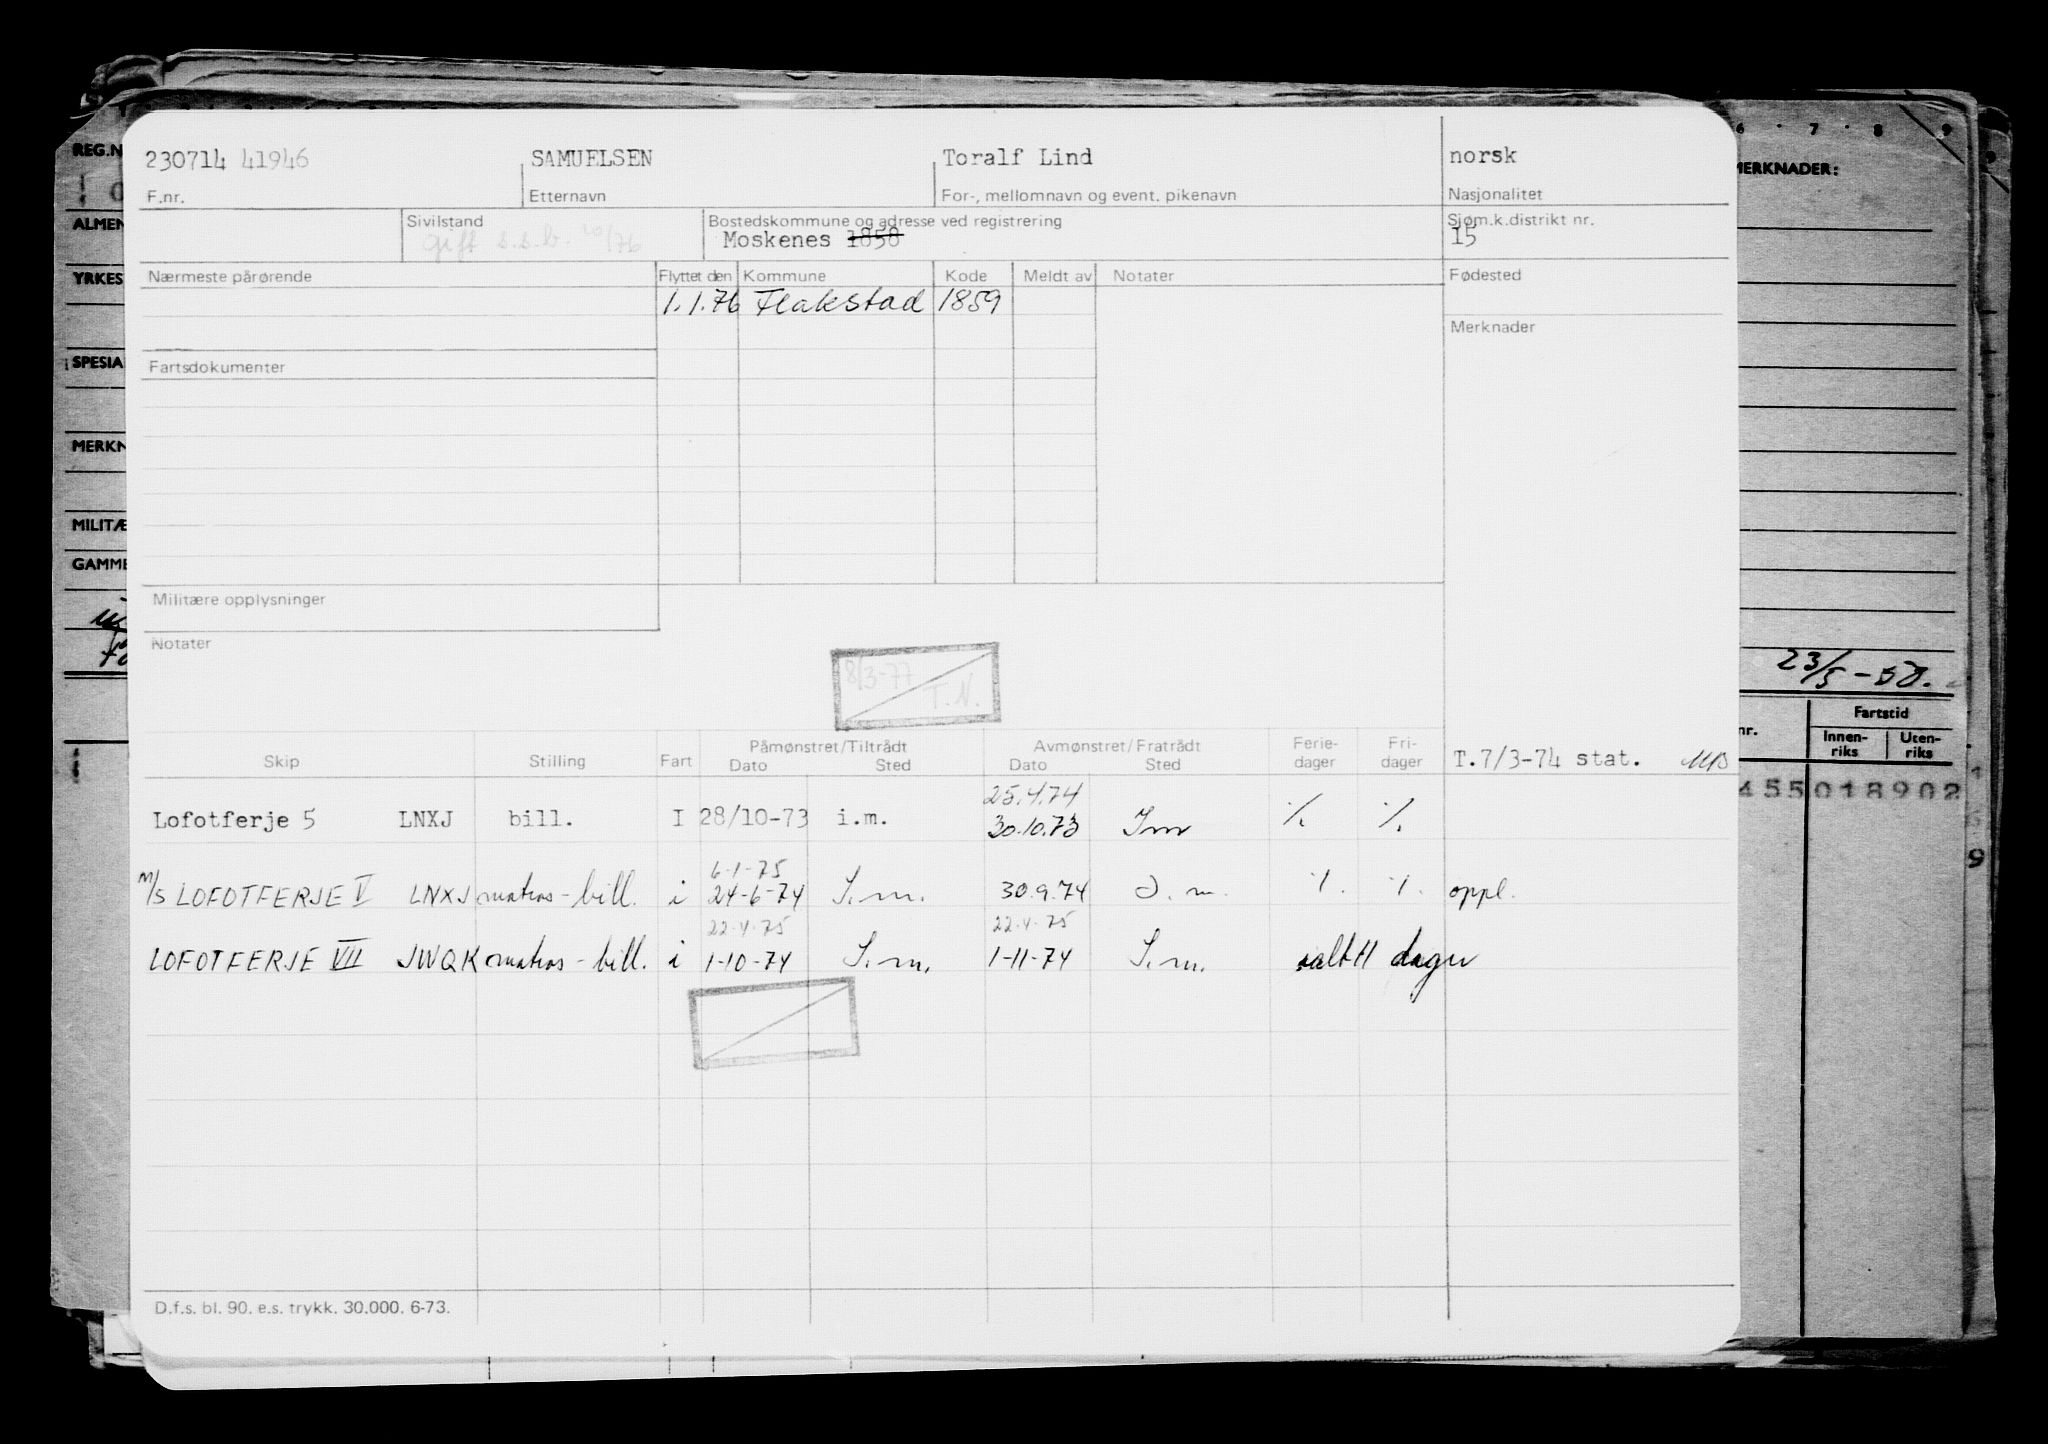 230714 41946 SAMUELSEN Toralf Lind norsk
F.nr. Etternavn For-, mellomnavn og event. pikenavn Nasjonalitet
Sivilstand Bostedskommune og adresse ved registrering Sjøm.k.distrikt nr.
gift s.s.b. 10/76 Moskenes 1858 15
Nærmeste pårørende Flyttet den Kommune Kode Meldt av Notater Fødested
1.1.76 Flakstad 1859
Merknader
Fartsdokumenter
Militære opplysninger
Notater
8/3-77
T.N.
Skip Stilling Fart Påmønstret/Tiltrådt Avmønstret/Fratrådt Ferie- Fri-
Dato Sted Dato Sted dager dager T.7/3-74 stat.
25.4.74
Lofotferje 5 LNXJ bill. I 28/10-73 i.m. 30.10.73 I m ./. ./.
6-1-75
M/S LOFOTFERJE V LNXJ matros-bill. i 24-6-74 I.m. 30.9.74 I.m. ./. ./. oppl.
22.4.75 22.4.75
LOFOTFERJE VII JWQK matros-bill. i 1-10-74 I.m. 1-11-74 I.m. dager
D.f.s. bl. 90. e.s. trykk. 30.000. 6-73.
REG.N
ALMEN
YRKES
SPESIA
MERKN
MILITÆ
GAMME
6 7 8 9
MERKNADER:
23/5-50.
nr. Fartstid
Innen- Uten-
riks riks
455018902
9